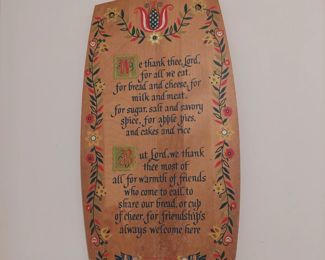 We thank thee, Lord,
for all we eat.
for bread and cheese, for
milk and meat.
for sugar, salt and savory
spice, for apple pies,
and cakes and rice
But Lord, we thank
thee most of
all for warmth of friends
who come to call, to
share our bread, or cup
of cheer, for friendship's
always welcome here